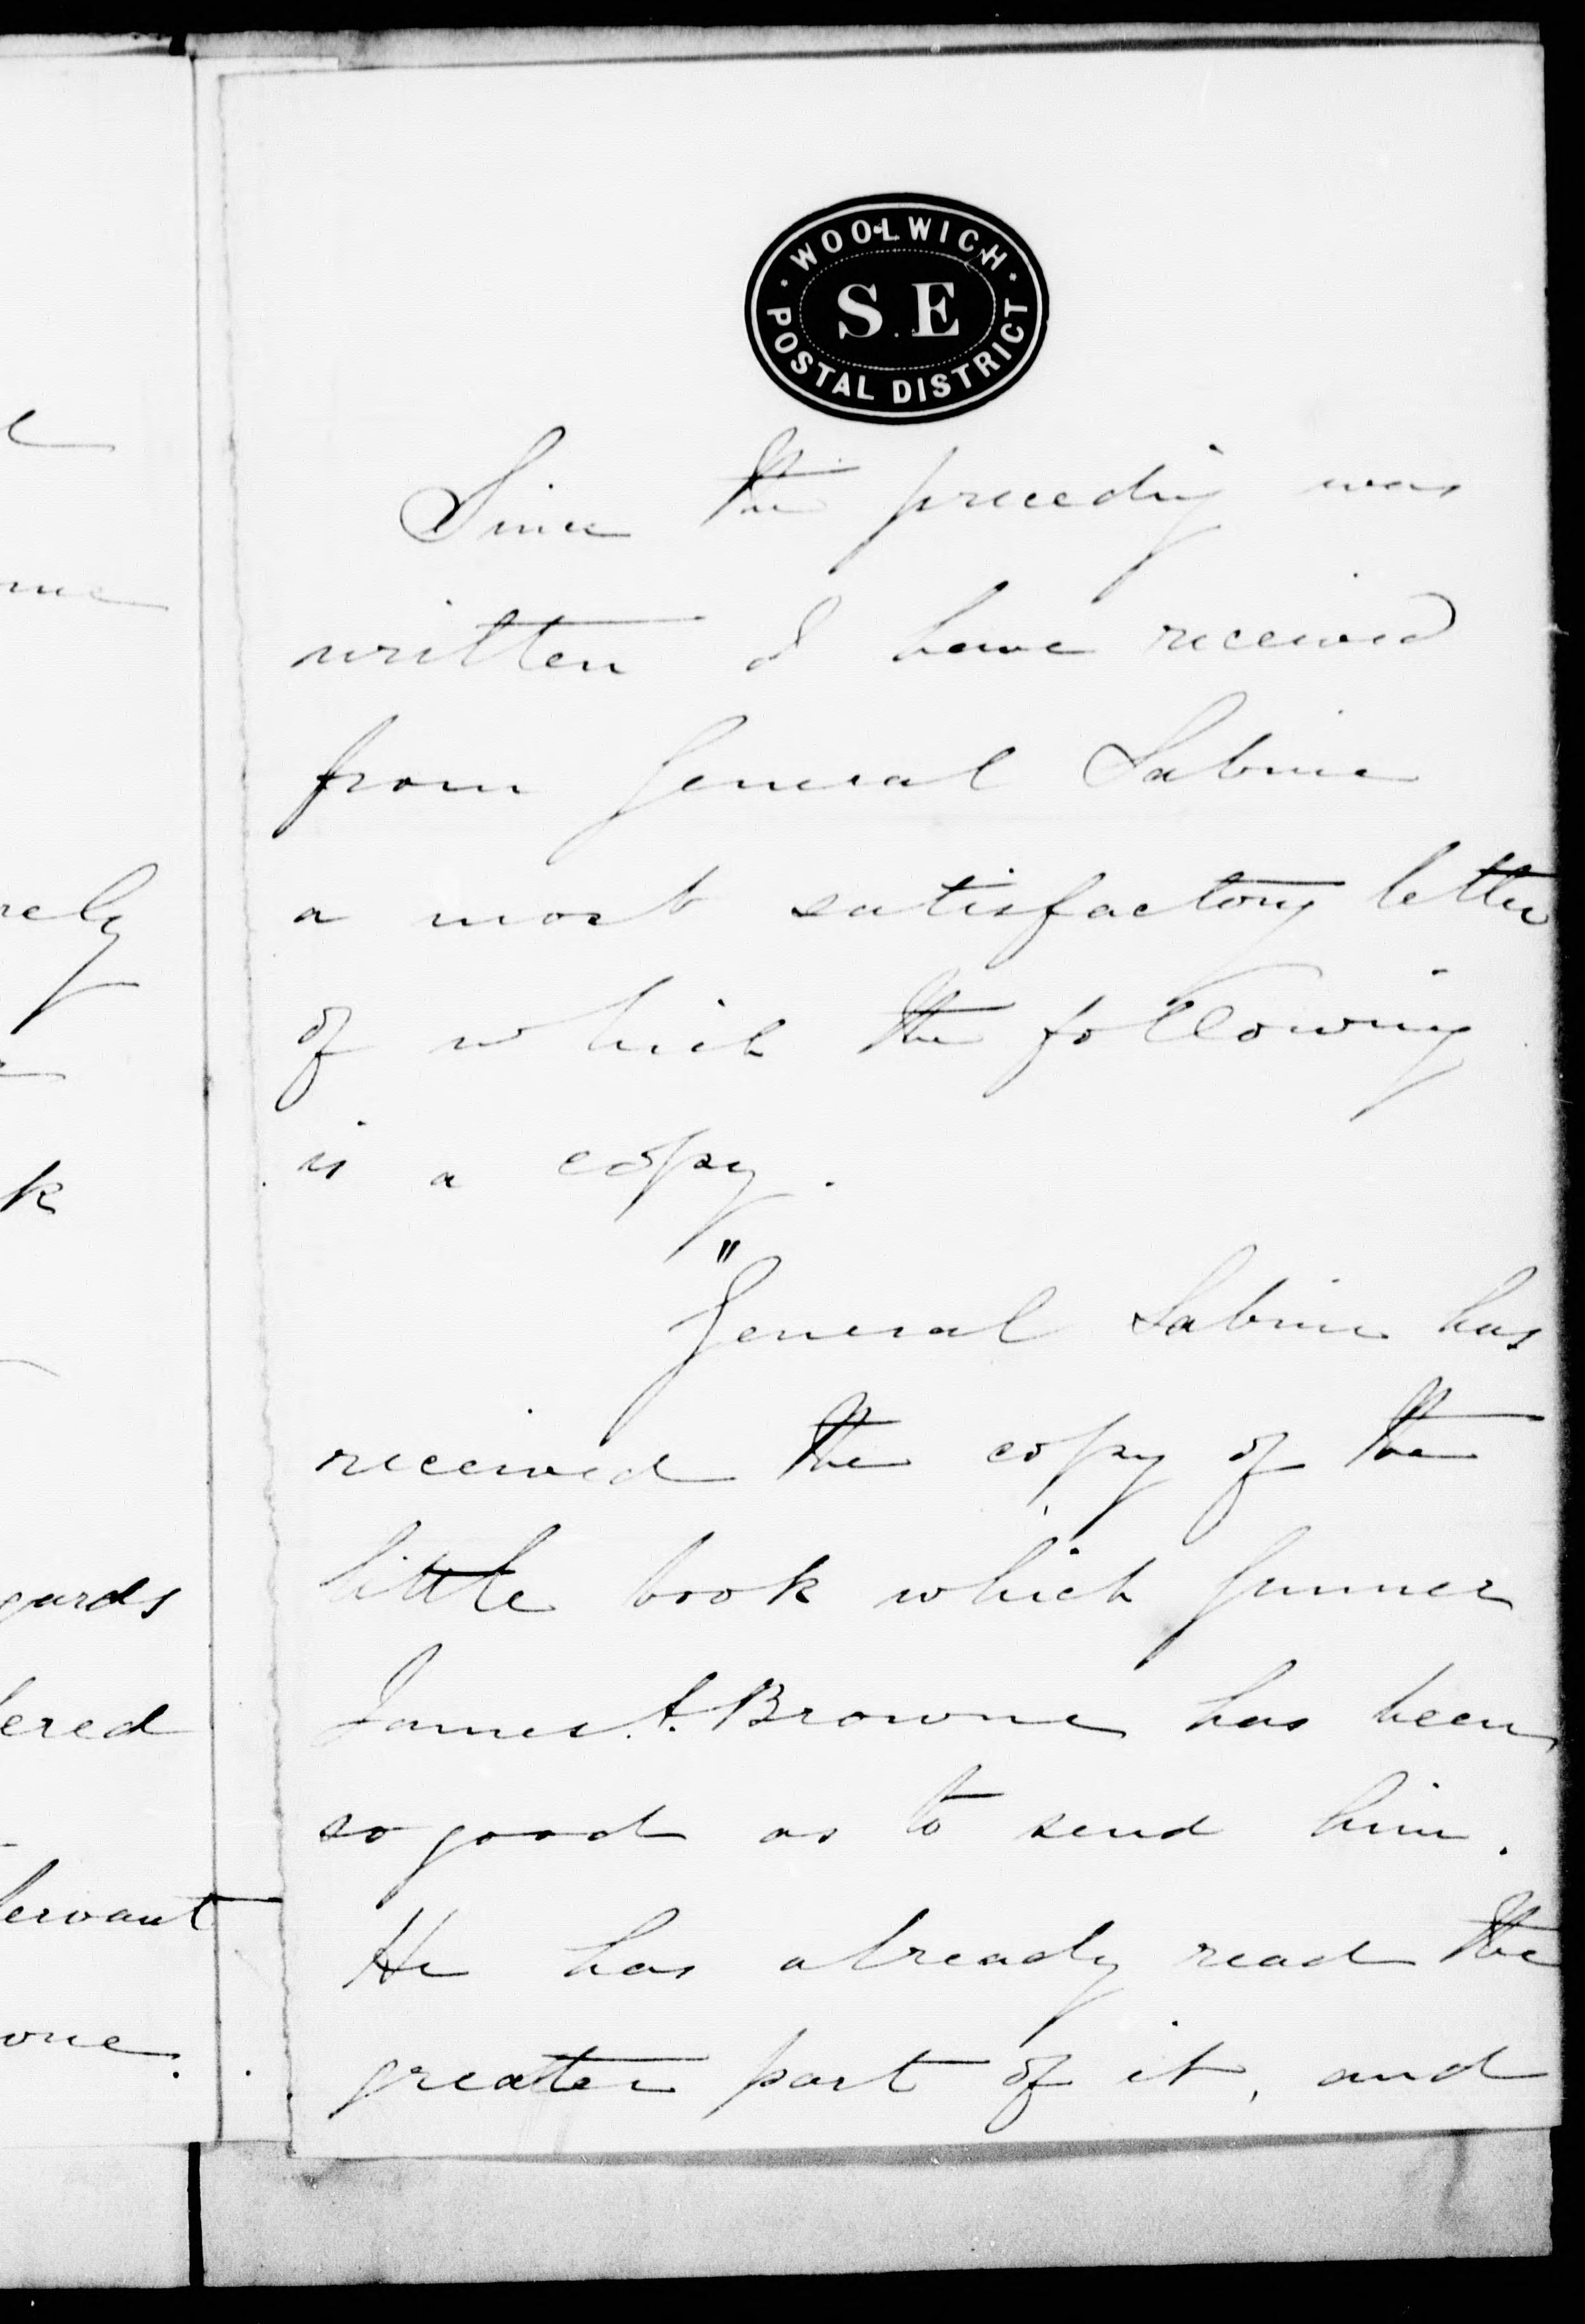 WOOLWICH
S.E
POSTAL DISTRICT
Since the preceding was
written I have received
from General Sabine
a most satisfactory letter
of which the following
is a copy.
"General Sabine has
received the copy of the
little book which Gunner
James A. Browne has been
so good as to send him.
He has already read the
greater part of it, and
rely
k
gards
ered
servant